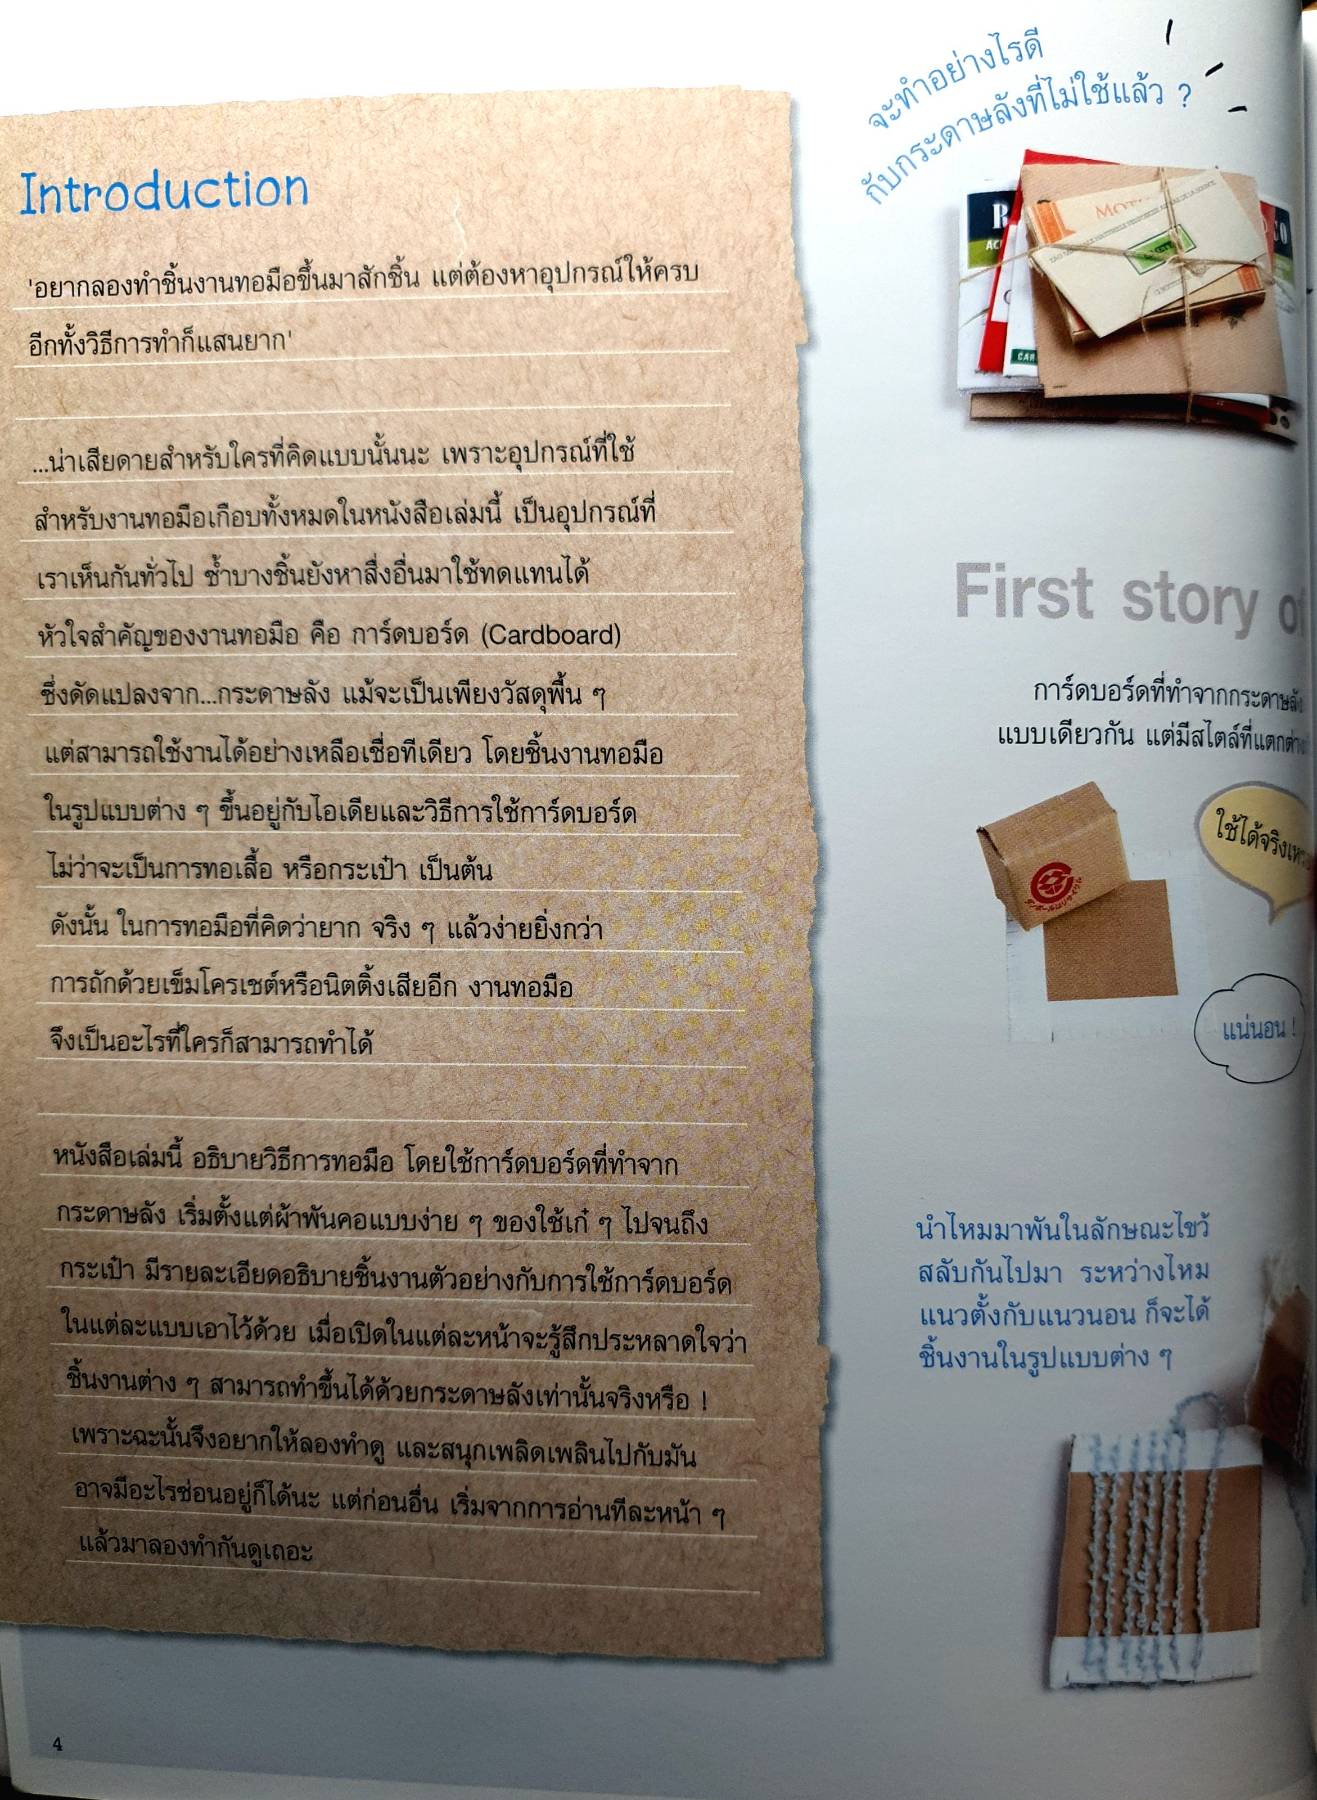 Introduction
'อยากลองทำชิ้นงานทอมือขึ้นมาสักชิ้น แต่ต้องหาอุปกรณ์ให้ครบ
อีกทั้งวิธีการทำก็แสนยาก'
...น่าเสียดายสำหรับใครที่คิดแบบนั้นนะ เพราะอุปกรณ์ที่ใช้
สำหรับงานทอมือเกือบทั้งหมดในหนังสือเล่มนี้ เป็นอุปกรณ์ที่
เราเห็นกันทั่วไป ซ้ำบางชิ้นยังหาสิ่งอื่นมาใช้ทดแทนได้
หัวใจสำคัญของงานทอมือ คือ การ์ดบอร์ด (Cardboard)
ซึ่งดัดแปลงจาก...กระดาษลัง แม้จะเป็นเพียงวัสดุพื้น ๆ
แต่สามารถใช้งานได้อย่างเหลือเชื่อทีเดียว โดยชิ้นงานทอมือ
ในรูปแบบต่าง ๆ ขึ้นอยู่กับไอเดียและวิธีการใช้การ์ดบอร์ด
ไม่ว่าจะเป็นการทอเสื้อ หรือกระเป๋า เป็นต้น
ดังนั้น ในการทอมือที่คิดว่ายาก จริง ๆ แล้วง่ายยิ่งกว่า
การถักด้วยเข็มโครเชต์หรือนิตติ้งเสียอีก งานทอมือ
จึงเป็นอะไรที่ใครก็สามารถทำได้
หนังสือเล่มนี้ อธิบายวิธีการทอมือ โดยใช้การ์ดบอร์ดที่ทำจาก
กระดาษลัง เริ่มตั้งแต่ผ้าพันคอแบบง่าย ๆ ของใช้เก๋ ๆ ไปจนถึง
กระเป๋า มีรายละเอียดอธิบายชิ้นงานตัวอย่างกับการใช้การ์ดบอร์ด
ในแต่ละแบบเอาไว้ด้วย เมื่อเปิดในแต่ละหน้าจะรู้สึกประหลาดใจว่า
ชิ้นงานต่าง ๆ สามารถทำขึ้นได้ด้วยกระดาษลังเท่านั้นจริงหรือ !
เพราะฉะนั้นจึงอยากให้ลองทำดู และสนุกเพลิดเพลินไปกับมัน
อาจมีอะไรซ่อนอยู่ก็ได้นะ แต่ก่อนอื่น เริ่มจากการอ่านทีละหน้า ๆ
แล้วมาลองทำกันดูเถอะ
4
จะทำอย่างไรดี
กับกระดาษลังที่ไม่ใช้แล้ว ?
First story of
การ์ดบอร์ดที่ทำจากกระดาษลัง
แบบเดียวกัน แต่มีสไตล์ที่แตกต่าง
ใช้ได้จริง
แน่นอน !
นำไหมมาพันในลักษณะไขว้
สลับกันไปมา ระหว่างไหม
แนวตั้งกับแนวนอน ก็จะได้
ชิ้นงานในรูปแบบต่าง ๆ